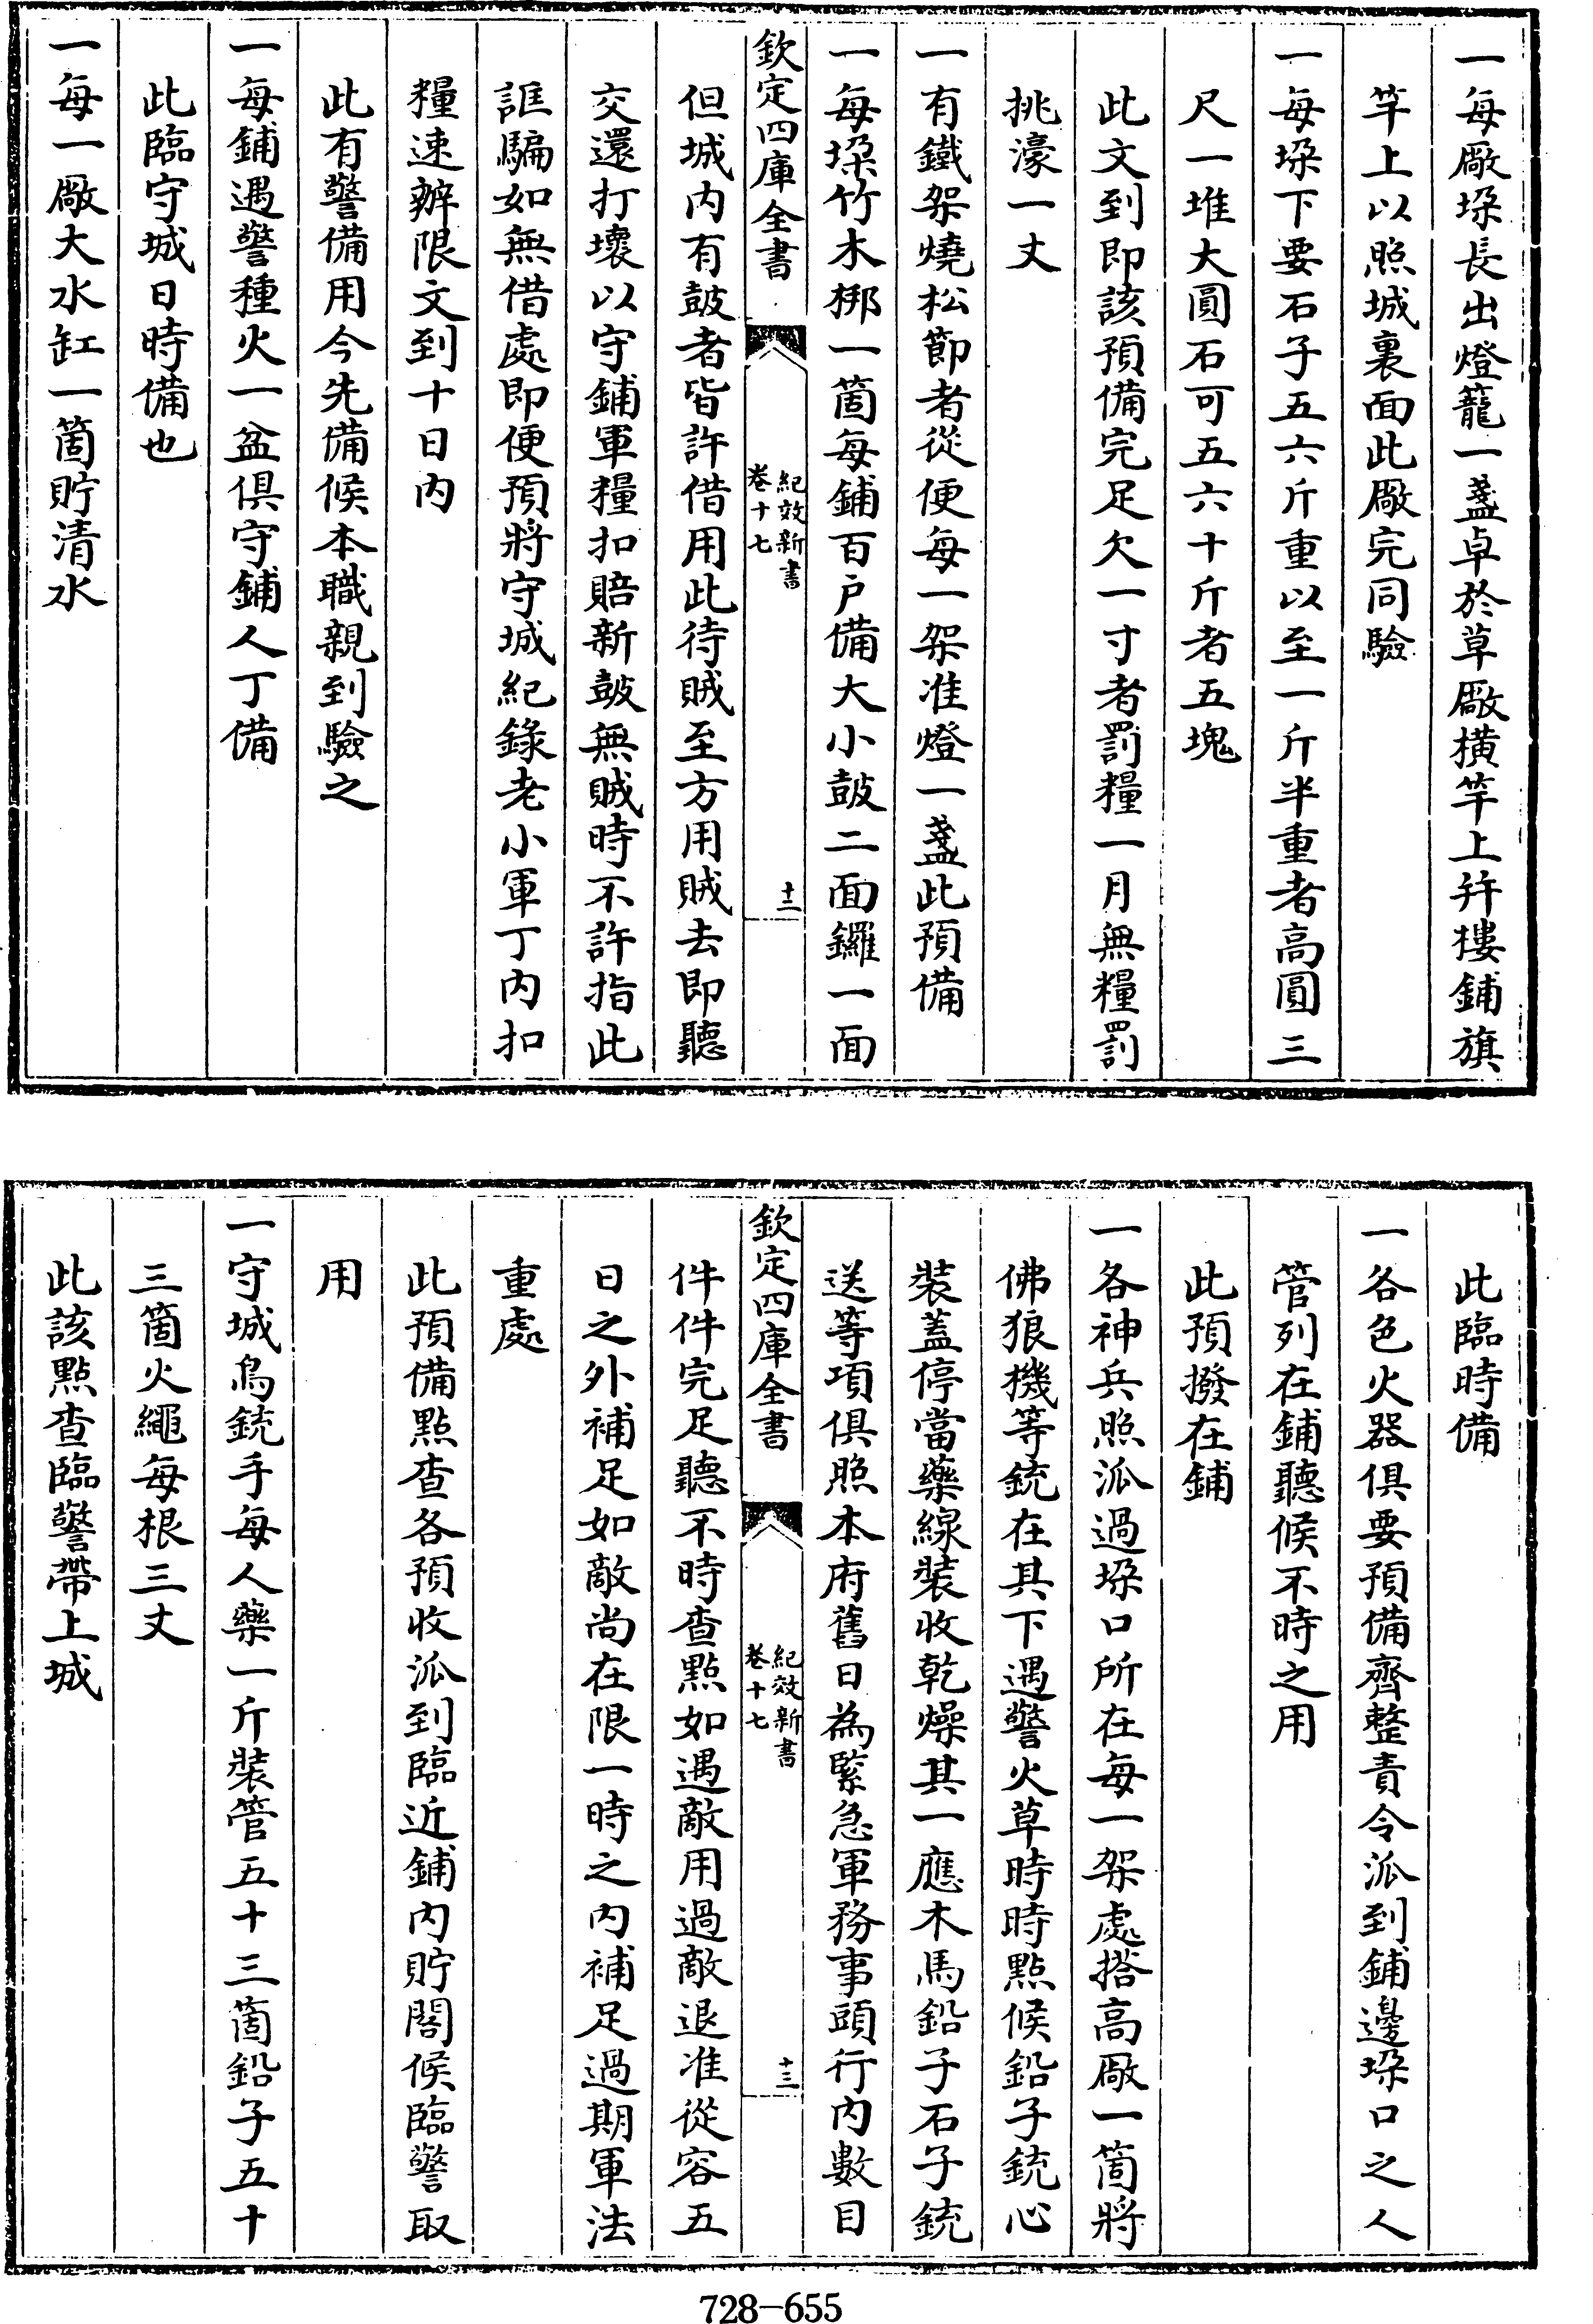 一每廠垜長出燈籠一盞卓於草廠橫竿上幷樓鋪旗
竿上以照城裏面此廠完同驗
一每垜下要石子五六斤重以至一斤半重者高圓三
尺一堆大圓石可五六十斤者五塊
此文到即該預備完足欠一寸者罰糧一月無糧罰
挑濠一丈
一有鐵架燒松節者從便每一架准燈一盞此預備
一每垜竹木梆一箇每鋪百戶備大小皷二面鑼一面
欽定四庫全書
紀效新書
卷十七
十二
但城内有皷者皆許借用此待賊至方用賊去即聽
交還打壞以守鋪軍糧扣賠新皷無賊時不許指此
誆騙如無借處即便預將守城紀錄老小軍丁内扣
糧速辦限文到十日内
此有警備用今先備候本職親到驗之
一每鋪遇警種火一盆俱守鋪人丁備
此臨守城日時備也
一每一廠大水缸一箇貯清水
此臨時備
一各色火器俱要預備齊整責令派到鋪邊垜口之人
管列在鋪聽候不時之用
此預撥在鋪
一各神兵照派過垜口所在每一架處搭高廠一箇將
佛狼機等銃在其下遇警火草時時點候鉛子銃心
裝蓋停當藥線裝收乾燥其一應木馬鉛子石子銃
送等項俱照本府舊日為緊急軍務事頭行内數目
欽定四庫全書
紀效新書
卷十七
十三
件件完足聽不時查點如遇敵用過敵退准從容五
日之外補足如敵尚在限一時之内補足過期軍法
重處
此預備點查各預收派到臨近鋪内貯閣候臨警取
用
一守城鳥銃手每人藥一斤裝管五十三箇鉛子五十
三箇火繩每根三丈
此該點查臨警帶上城
728-655